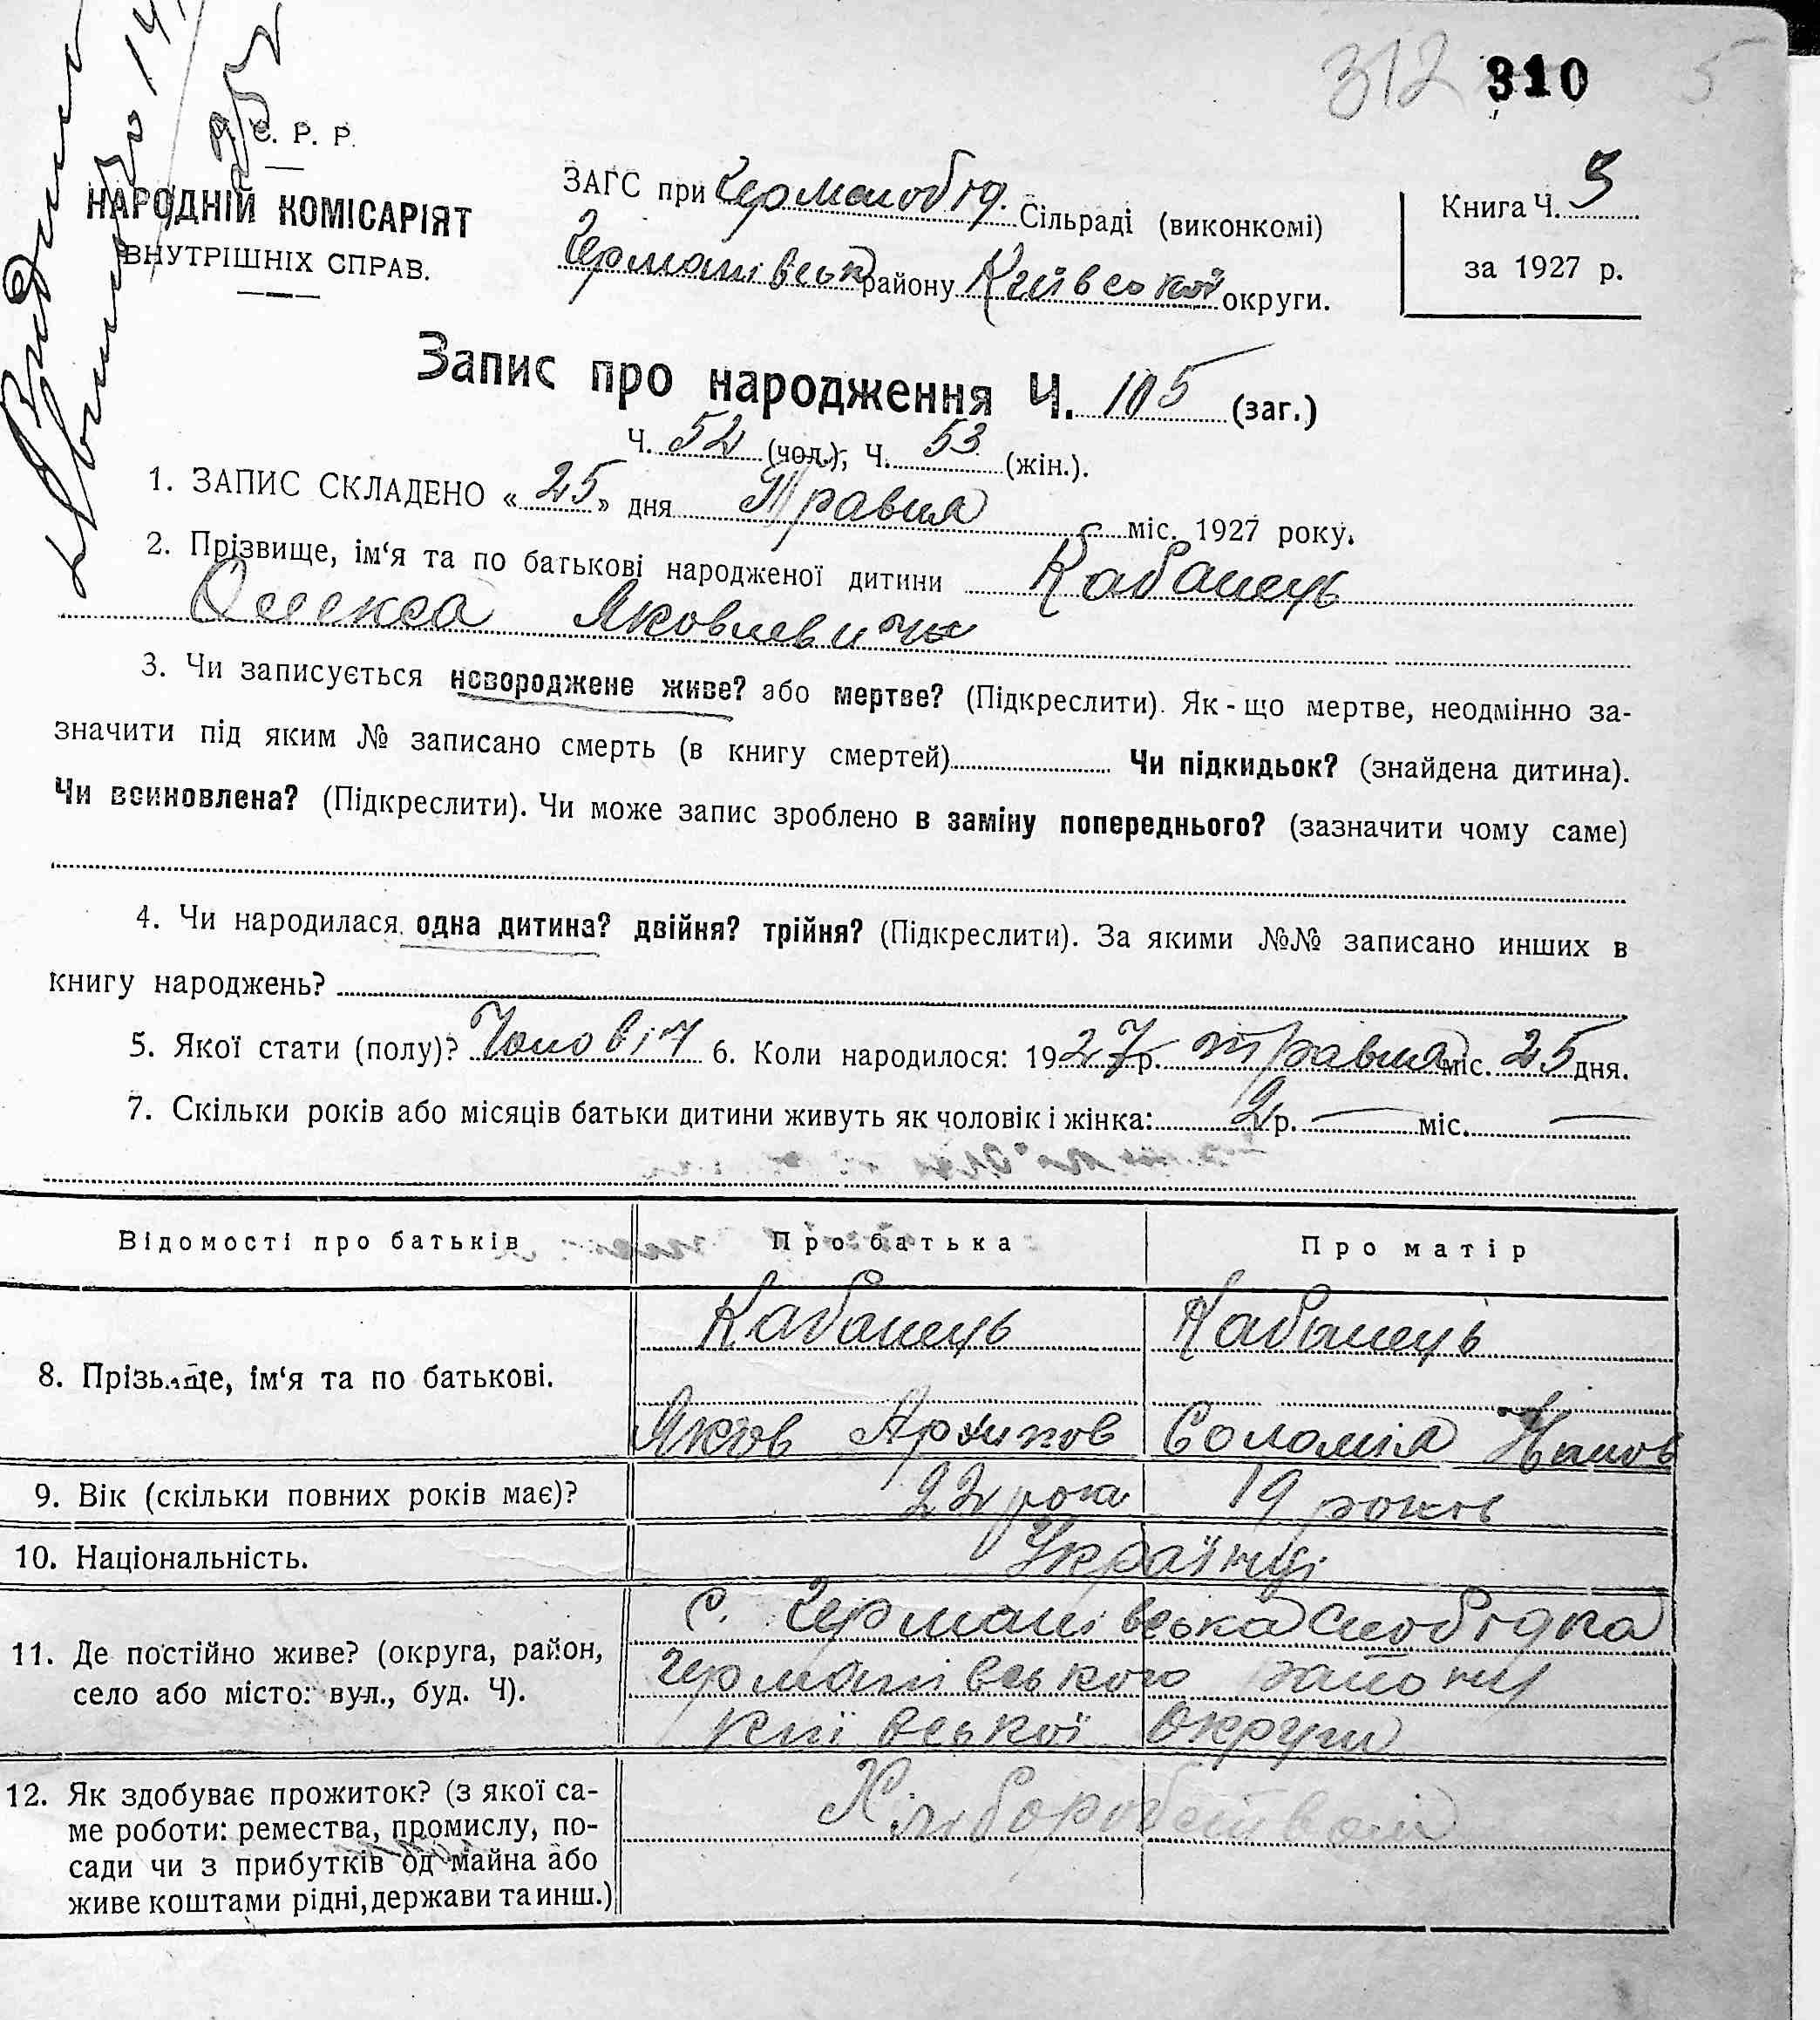 312 310 5
С. Р. Р.
НАРОДНІЙ КОМІСАРІЯТ
ВНУТРІШНІХ СПРАВ.
ЗАГС при Германобід. Сільраді (виконкомі)
Германівськ району Київської округи.
Книга Ч. 3
за 1927 р.
Запис про народження Ч. 105 (заг.)
Ч. 52 (чол.), Ч. 53 (жін.).
1. ЗАПИС СКЛАДЕНО « 25 » дня Травня міс. 1927 року.
2. Прізвище, ім‘я та по батькові народженої дитини Кабанець
Олекса Яковлевич
3. Чи записується новороджене живе? або мертве? (Підкреслити). Як - що мертве, неодмінно за-
значити під яким № записано смерть (в книгу смертей) Чи підкидьок? (знайдена дитина).
Чи всиновлена? (Підкреслити). Чи може запис зроблено в заміну попереднього? (зазначити чому саме)
4. Чи народилася одна дитина? двійня? трійня? (Підкреслити). За якими №№ записано инших в
книгу народжень?
5. Якої стати (полу)? Чоловіч 6. Коли народилося: 1927 р. травня міс. 25 дня.
7. Скільки років або місяців батьки дитини живуть як чоловік і жінка: 2 р. — міс. —
Відомості про батьків Про батька Про матір
8. Прізвище, ім‘я та по батькові.
Кабанець Кабанець
Яков Архипов Соломія
9. Вік (скільки повних років має)? 22 рока 19 років
10. Національність. Українці
11. Де постійно живе? (округа, район,
село або місто: вул., буд. Ч).
с. Германівська Слобідка
Германівського району
Київської округи
12. Як здобуває прожиток? (з якої са-
ме роботи: ремества, промислу, по-
сади чи з прибутків од майна або
живе коштами рідні, держави та инш.)
Хліборобством